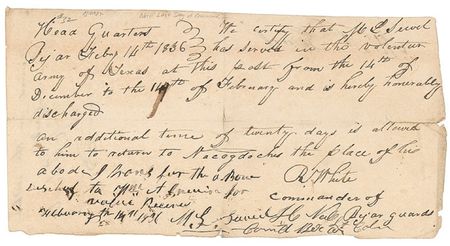 Head Quarters We certify that M L Sewel
Bejar Feby 14th 1836 has served in the volenter
army of Texas at this post from the 14th of
December to the 14th of February and is hereby honerably
discharged
an additional time of twenty days is allowed
to him to return to Nacogdoches the place of his
abode I trans for the above R White
to Wm A for commander of
value Received Bejar guards
February 14th 1836 M L Sewel